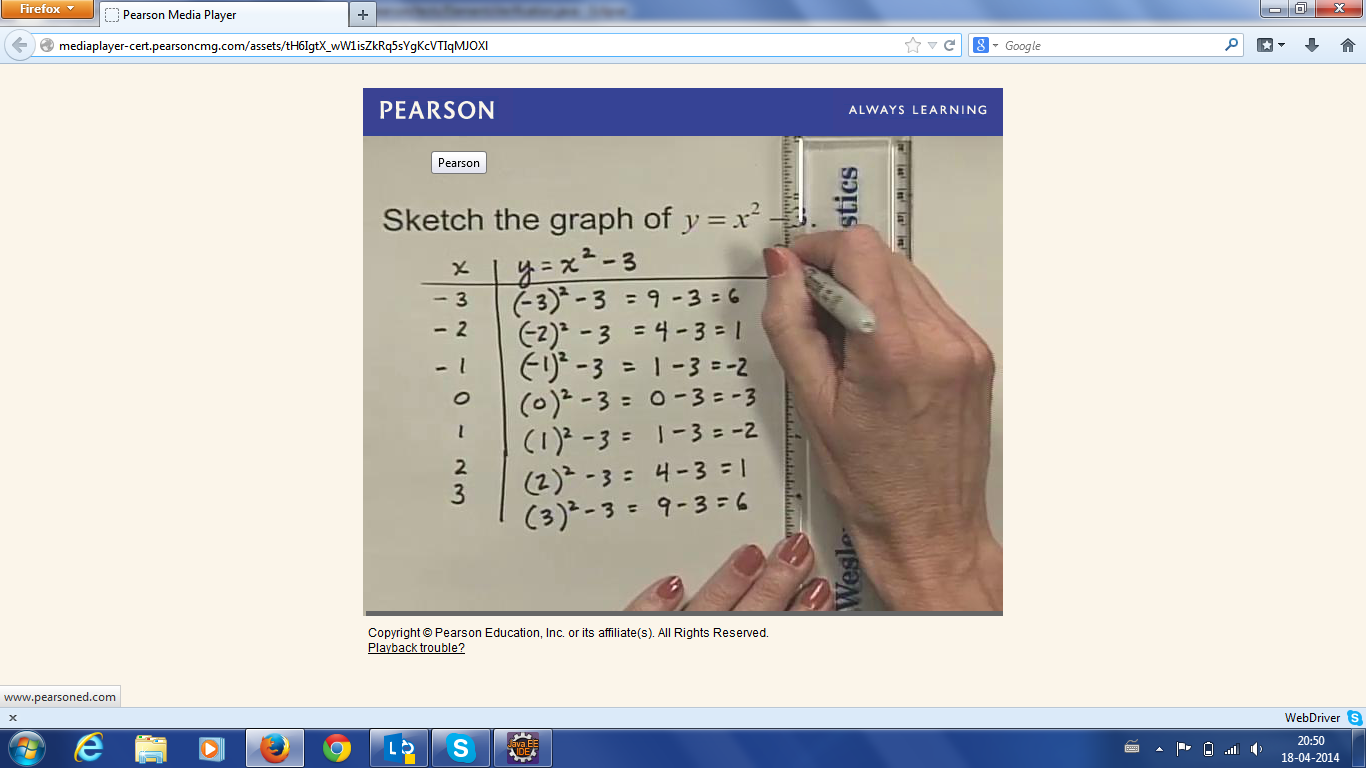 Firefox
Pearson Media Player
mediaplayer-cert.pearsoncmg.com/assets/tH6IgtX_wW1isZkRq5sYgKcVTIqMJOXI
Google
PEARSON
ALWAYS LEARNING
Pearson
Sketch the graph of y = x² – 3.
x | y = x² – 3
–3 | (–3)² – 3 = 9 – 3 = 6
–2 | (–2)² – 3 = 4 – 3 = 1
–1 | (–1)² – 3 = 1 – 3 = –2
0 | (0)² – 3 = 0 – 3 = –3
1 | (1)² – 3 = 1 – 3 = –2
2 | (2)² – 3 = 4 – 3 = 1
3 | (3)² – 3 = 9 – 3 = 6
stics
Wesle
Copyright © Pearson Education, Inc. or its affiliate(s). All Rights Reserved.
Playback trouble?
www.pearsoned.com
WebDriver
Java EE
IDE
20:50
18-04-2014